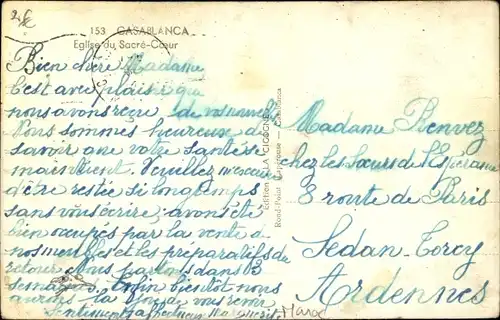 153 CASABLANCA
Eglise du Sacré-Cœur
Bien chère Madame
C'est avec plaisir que
nous avons reçu de vos nouvelles
Nous sommes heureux de
savoir que votre santé se
maintient. Veuillez m'excuser
d'être restée si longtemps
sans vous écrire; avons été
bien occupés par la vente de
nos meubles et les préparatifs de
retour. Nous partons dans 3
semaines. Enfin bientôt nous
aurons la joie de vous revoir
Maroc
Edition LA CIGOGNE
Rond-Point Casablanca
Madame Benvez
chez les Sœurs de l'Espérance
8 route de Paris
Sedan-Torcy
Ardennes